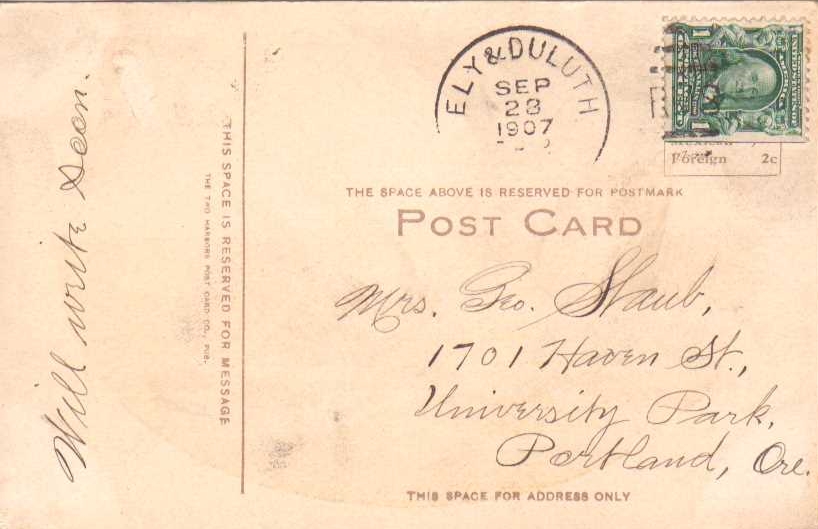 Will write soon.
THIS SPACE IS RESERVED FOR MESSAGE
THE TWO HARBORS POST CARD CO., PUB.
ELY & DULUTH
SEP
23
1907
Foreign 2c
THE SPACE ABOVE IS RESERVED FOR POSTMARK
POST CARD
Mrs. Geo. Staub,
1701 Haven St.,
University Park,
Portland, Ore.
THIS SPACE FOR ADDRESS ONLY